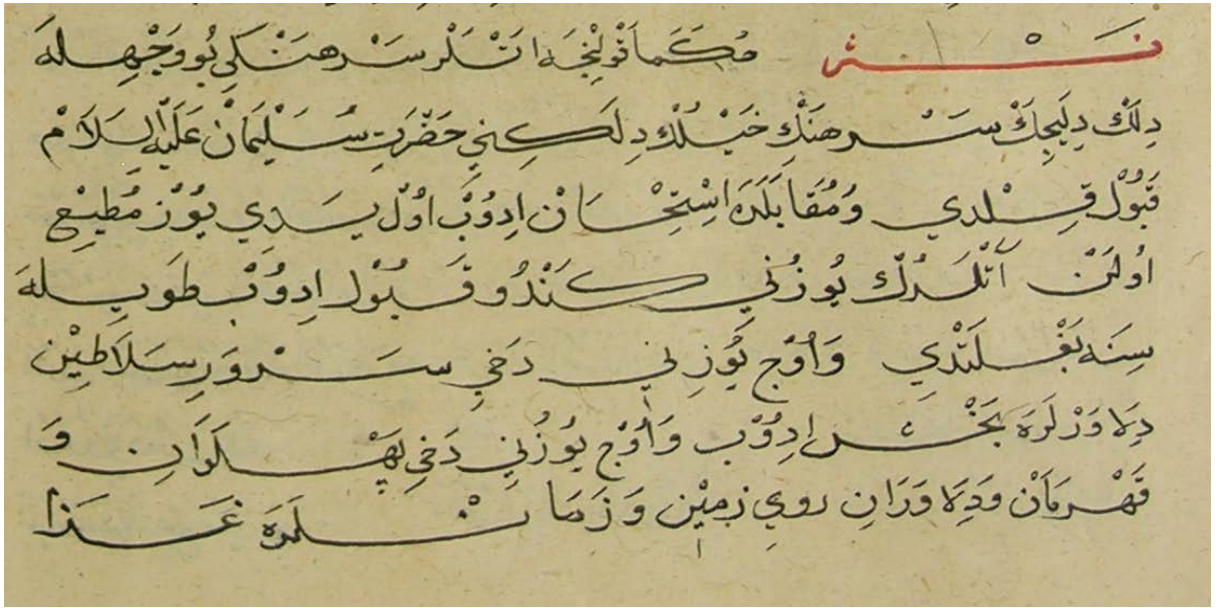 نثر مكمل قولنجه اتلر سرهنك كي بو وجهله
دلك ديليجك سرهنك خيلك دلكني حضرت سليمان عليه السلام
قبول قلدي ومقابلده استحسان ادوب اول يدي يوز مطيع
اولن اتلرك يوزني كندو قبول ادوب طويله
سنه بغلتدي واوج يوزني دخي سرور سلاطين
دلاورلره بخش ادوب واوج يوزني دخي پهلوان و
قهرمان ودلاوران روي زمين وزمانلرده غذا